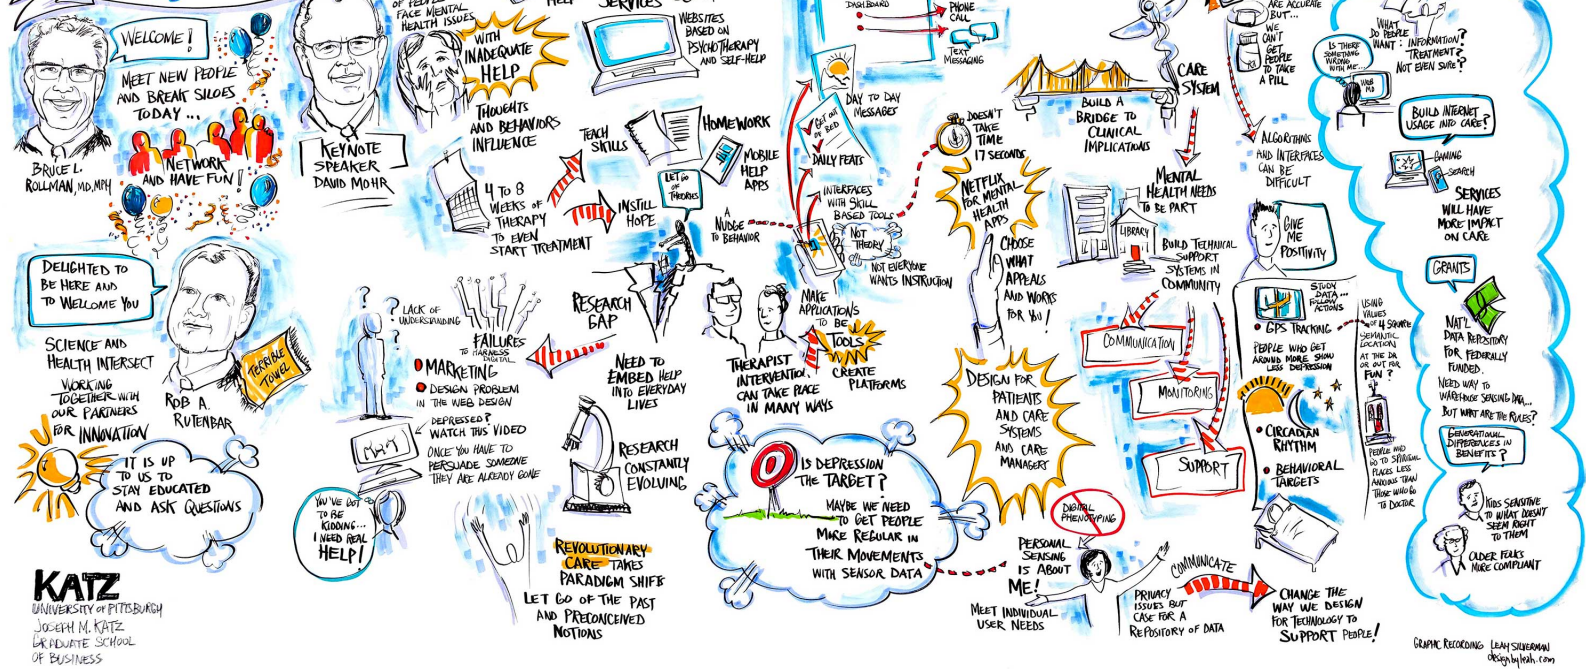 WELCOME!
MEET NEW PEOPLE
AND BREAK SILOES
TODAY...
BRUCE L.
ROLLMAN, MD, MPH
NETWORK
AND HAVE FUN!
DELIGHTED TO
BE HERE AND
TO WELCOME YOU
SCIENCE AND
HEALTH INTERSECT
WORKING
TOGETHER WITH
OUR PARTNERS
FOR INNOVATION
TERRIBLE
TOWEL
ROB A.
RUTENBAR
IT IS UP
TO US TO
STAY EDUCATED
AND ASK QUESTIONS
KATZ
UNIVERSITY OF PITTSBURGH
JOSEPH M. KATZ
GRADUATE SCHOOL
OF BUSINESS
FACE MENTAL
HEALTH ISSUES
WITH
INADEQUATE
HELP
KEYNOTE
SPEAKER
DAVID MOHR
THOUGHTS
AND BEHAVIORS
INFLUENCE
4 TO 8
WEEKS OF
THERAPY
TO EVEN
START TREATMENT
TEACH
SKILLS
INSTILL
HOPE
SERVICES
WEBSITES
BASED ON
PSYCHOTHERAPY
AND SELF-HELP
HOMEWORK
MOBILE
HELP
APPS
LET GO
OF
THEORIES
RESEARCH
GAP
? ? ?
LACK OF
UNDERSTANDING
FAILURES
TO HARNESS
DIGITAL
MARKETING
DESIGN PROBLEM
IN THE WEB DESIGN
DEPRESSED?
WATCH THIS VIDEO
ONCE YOU HAVE TO
PERSUADE SOMEONE
THEY ARE ALREADY GONE
YOU'VE GOT
TO BE
KIDDING...
I NEED REAL
HELP!
NEED TO
EMBED HELP
INTO EVERYDAY
LIVES
RESEARCH
CONSTANTLY
EVOLVING
REVOLUTIONARY
CARE TAKES
PARADIGM SHIFTS
LET GO OF THE PAST
AND PRECONCEIVED
NOTIONS
DASHBOARD
PHONE
CALL
TEXT
MESSAGING
DAY TO DAY
MESSAGES
GET OUT
OF BED
DAILY FEATS
INTERFACES
WITH SKILL
BASED TOOLS
A
NUDGE
TO BEHAVIOR
NOT
THEORY
NOT EVERYONE
WANTS INSTRUCTION
MAKE
APPLICATIONS
TO BE
TOOLS
CREATE
PLATFORMS
THERAPIST
INTERVENTION
CAN TAKE PLACE
IN MANY WAYS
IS DEPRESSION
THE TARGET?
MAYBE WE NEED
TO GET PEOPLE
MORE REGULAR IN
THEIR MOVEMENTS
WITH SENSOR DATA
DOESN'T
TAKE
TIME
17 SECONDS
NETFLIX
FOR MENTAL
HEALTH
APPS
CHOOSE
WHAT
APPEALS
AND WORKS
FOR YOU!
DESIGN FOR
PATIENTS
AND CARE
SYSTEMS
AND CARE
MANAGERY
DIGITAL
PHENOTYPING
PERSONAL
SENSING
IS ABOUT
ME!
MEET INDIVIDUAL
USER NEEDS
PRIVACY
ISSUES BUT
CASE FOR A
REPOSITORY OF DATA
COMMUNICATE
CHANGE THE
WAY WE DESIGN
FOR TECHNOLOGY TO
SUPPORT PEOPLE!
BUILD A
BRIDGE TO
CLINICAL
IMPLICATIONS
CARE
SYSTEM
MENTAL
HEALTH NEEDS
TO BE PART
LIBRARY
BUILD TECHNICAL
SUPPORT
SYSTEMS IN
COMMUNITY
COMMUNICATION
MONITORING
SUPPORT
ARE ACCURATE
BUT...
WE
CAN'T
GET
PEOPLE
TO TAKE
A PILL
ALGORITHMS
AND INTERFACES
CAN BE
DIFFICULT
GIVE
ME
POSITIVITY
STUDY
DATA...
FOLLOW
ACTIONS
GPS TRACKING
PEOPLE WHO GET
AROUND MORE SHOW
LESS DEPRESSION
CIRCADIAN
RHYTHM
BEHAVIORAL
TARGETS
USING
VALUES
OF 4 SQUARE
SEMANTIC
LOCATION
AT THE DR
OR OUT FOR
FUN?
PEOPLE WHO
GO TO SPIRITUAL
PLACES LESS
ANXIOUS THAN
THOSE WHO GO
TO DOCTOR
WHAT
DO PEOPLE
WANT: INFORMATION?
TREATMENT?
NOT EVEN SURE?
IS THERE
SOMETHING
WRONG
WITH ME...
WEB
MD
BUILD INTERNET
USAGE INTO CARE?
GAMING
SEARCH
SERVICES
WILL HAVE
MORE IMPACT
ON CARE
GRANTS
NAT'L
DATA REPOSITORY
FOR FEDERALLY
FUNDED.
NEED WAY TO
WAREHOUSE SENSING DATA...
BUT WHAT ARE THE RULES?
GENERATIONAL
DIFFERENCES IN
BENEFITS?
KIDS SENSITIVE
TO WHAT DOESN'T
SEEM RIGHT
TO THEM
OLDER FOLKS
MORE COMPLIANT
GRAPHIC RECORDING LEAH SILVERMAN
designbyleah.com